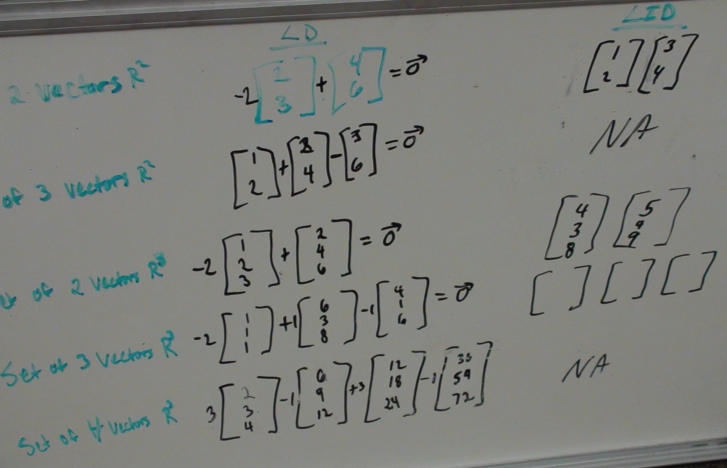 LD LID
2 vectors R² -2[2 3]+[4 6]=0⃗ [1 2][3 4]
of 3 vectors R² [1 2]+[2 4]-[3 6]=0⃗ NA
of 2 vectors R³ -2[1 2 3]+[2 4 6]=0⃗ [4 3 8][5 9]
Set of 3 vectors R³ -2[1 1 1]+1[6 3 8]-1[4 1 6]=0⃗ [ ][ ][ ]
Set of 4 vectors R³ 3[2 3 4]-1[6 9 12]+3[12 18 24]-1[59 72] NA